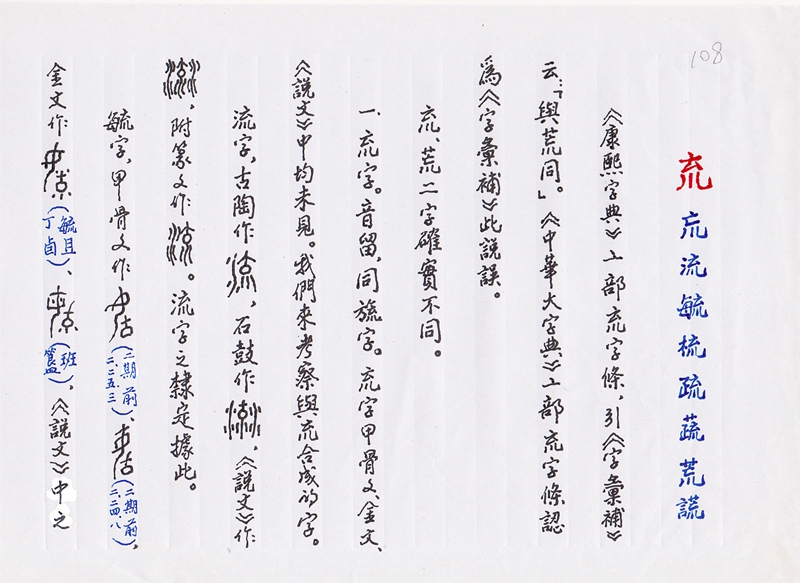 108
㐬巟流毓梳疏蔬荒謊
《康熙字典》亠部㐬字條,引《字彙補》
云:「與荒同。」《中華大字典》亠部㐬字條認
爲《字彙補》此說誤。
㐬、荒二字確實不同。
一、㐬字。音留,同旒字。㐬字甲骨文、金文、
《說文》中均未見。我們來考察與㐬合成的字。
流字,古陶作,石鼓作,《說文》作
,附篆文作。流字之隸定據此。
毓字,甲骨文作(二期前二.二五.三)、(二期前二.二四.八),
金文作(毓且丁卣)、(班簋),《說文》中之